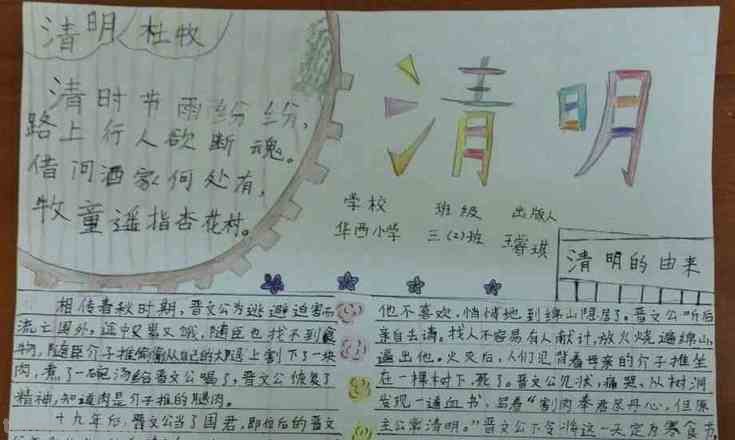 清明 杜牧
清时节雨纷纷,
路上行人欲断魂。
借问酒家何处有,
牧童遥指杏花村。
清明
学校 班级 出版人
华西小学 三(2)班 王睿琪
清明的由来
相传春秋时期,晋文公为逃避迫害而
流亡国外,途中又累又饿,随臣也找不到食
物,随臣介子推偷偷从自己的大腿上割下了一块
肉,煮了一碗汤给晋文公喝了,晋文公恢复了
精神,知道肉是介子推的腿肉。
十九年后,晋文公当了国君,即位后的晋文
他不喜欢,悄悄地到绵山隐居了。晋文公听后
亲自去请。找人不容易有人献计,放火烧遍绵山,
逼出他。火灭后,人们见背着母亲的介子推坐
在一棵树下,死了。晋文公见状,痛哭、从树洞
发现一道血书,写着“割肉奉君尽丹心,但原
主公常清明。”晋文公下令将这一天定为寒食节